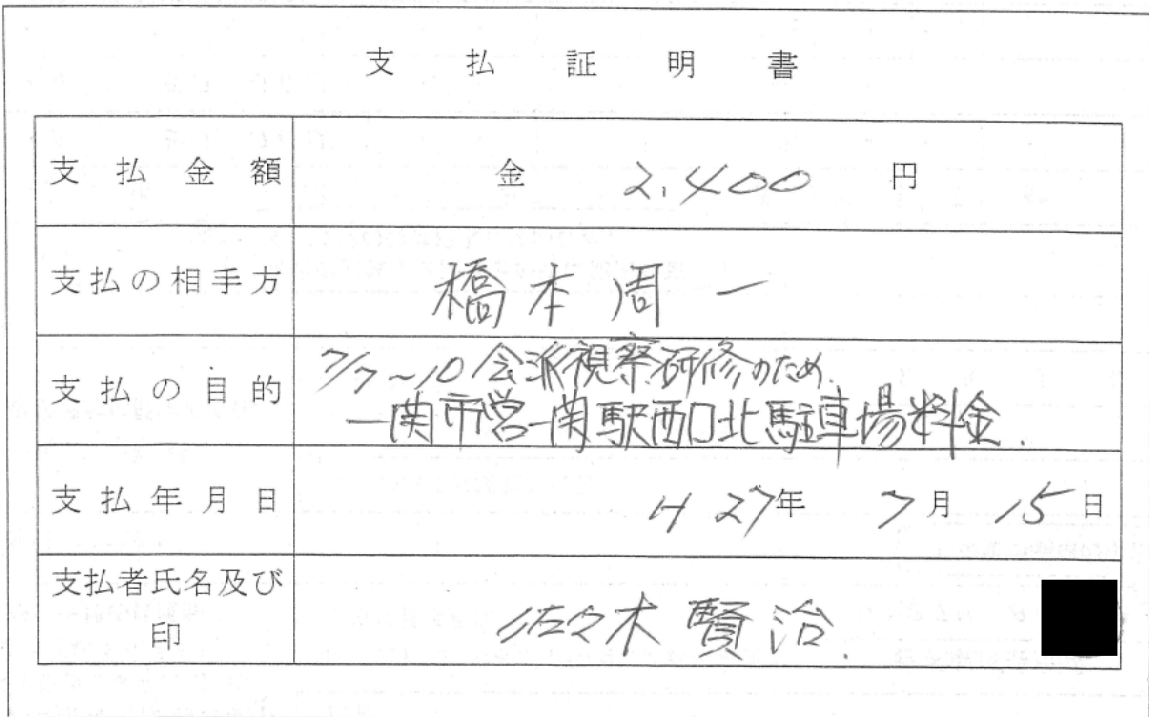 支払証明書
支払金額 金 2,400 円
支払の相手方 橋本周一
支払の目的 7/7~10会派視察研修のため.
一関市営一関駅西口北駐車場料金.
支払年月日 H27年 7月 15日
支払者氏名及び
印 佐々木 賢治.